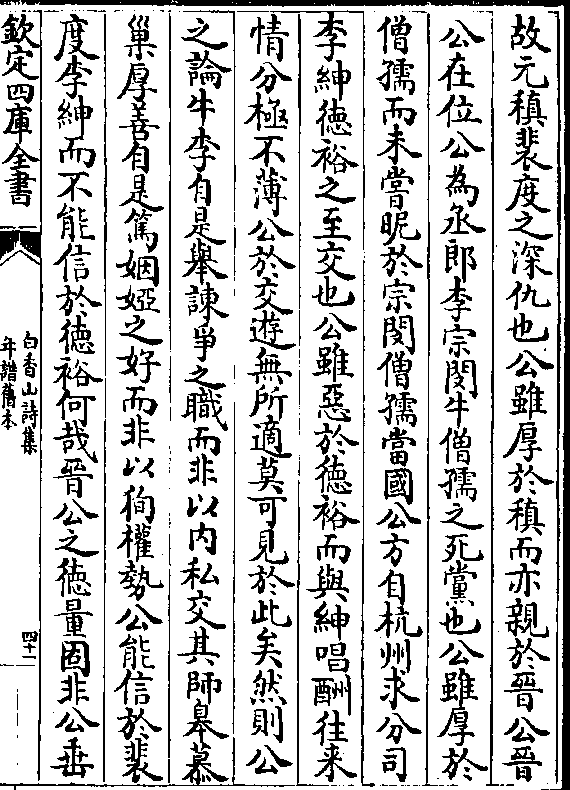 故元稹裴度之深仇也公雖厚於稹而亦親於晉公晉
公在位公為丞郎李宗閔牛僧孺之死黨也公雖厚於
僧孺而未嘗昵於宗閔僧孺當國公方自杭州求分司
李紳德裕之至交也公雖惡於德裕而與紳唱酬往来
情分極不薄公於交遊無所適莫可見於此矣然則公
之論牛李自是舉諫爭之職而非以内私交其師皋慕
巢厚善自是篤姻婭之好而非以徇權勢公能信於裴
度李紳而不能信於德裕何哉晉公之德量固非公垂
欽定四庫全書
白香山詩集
年譜舊本
四十一